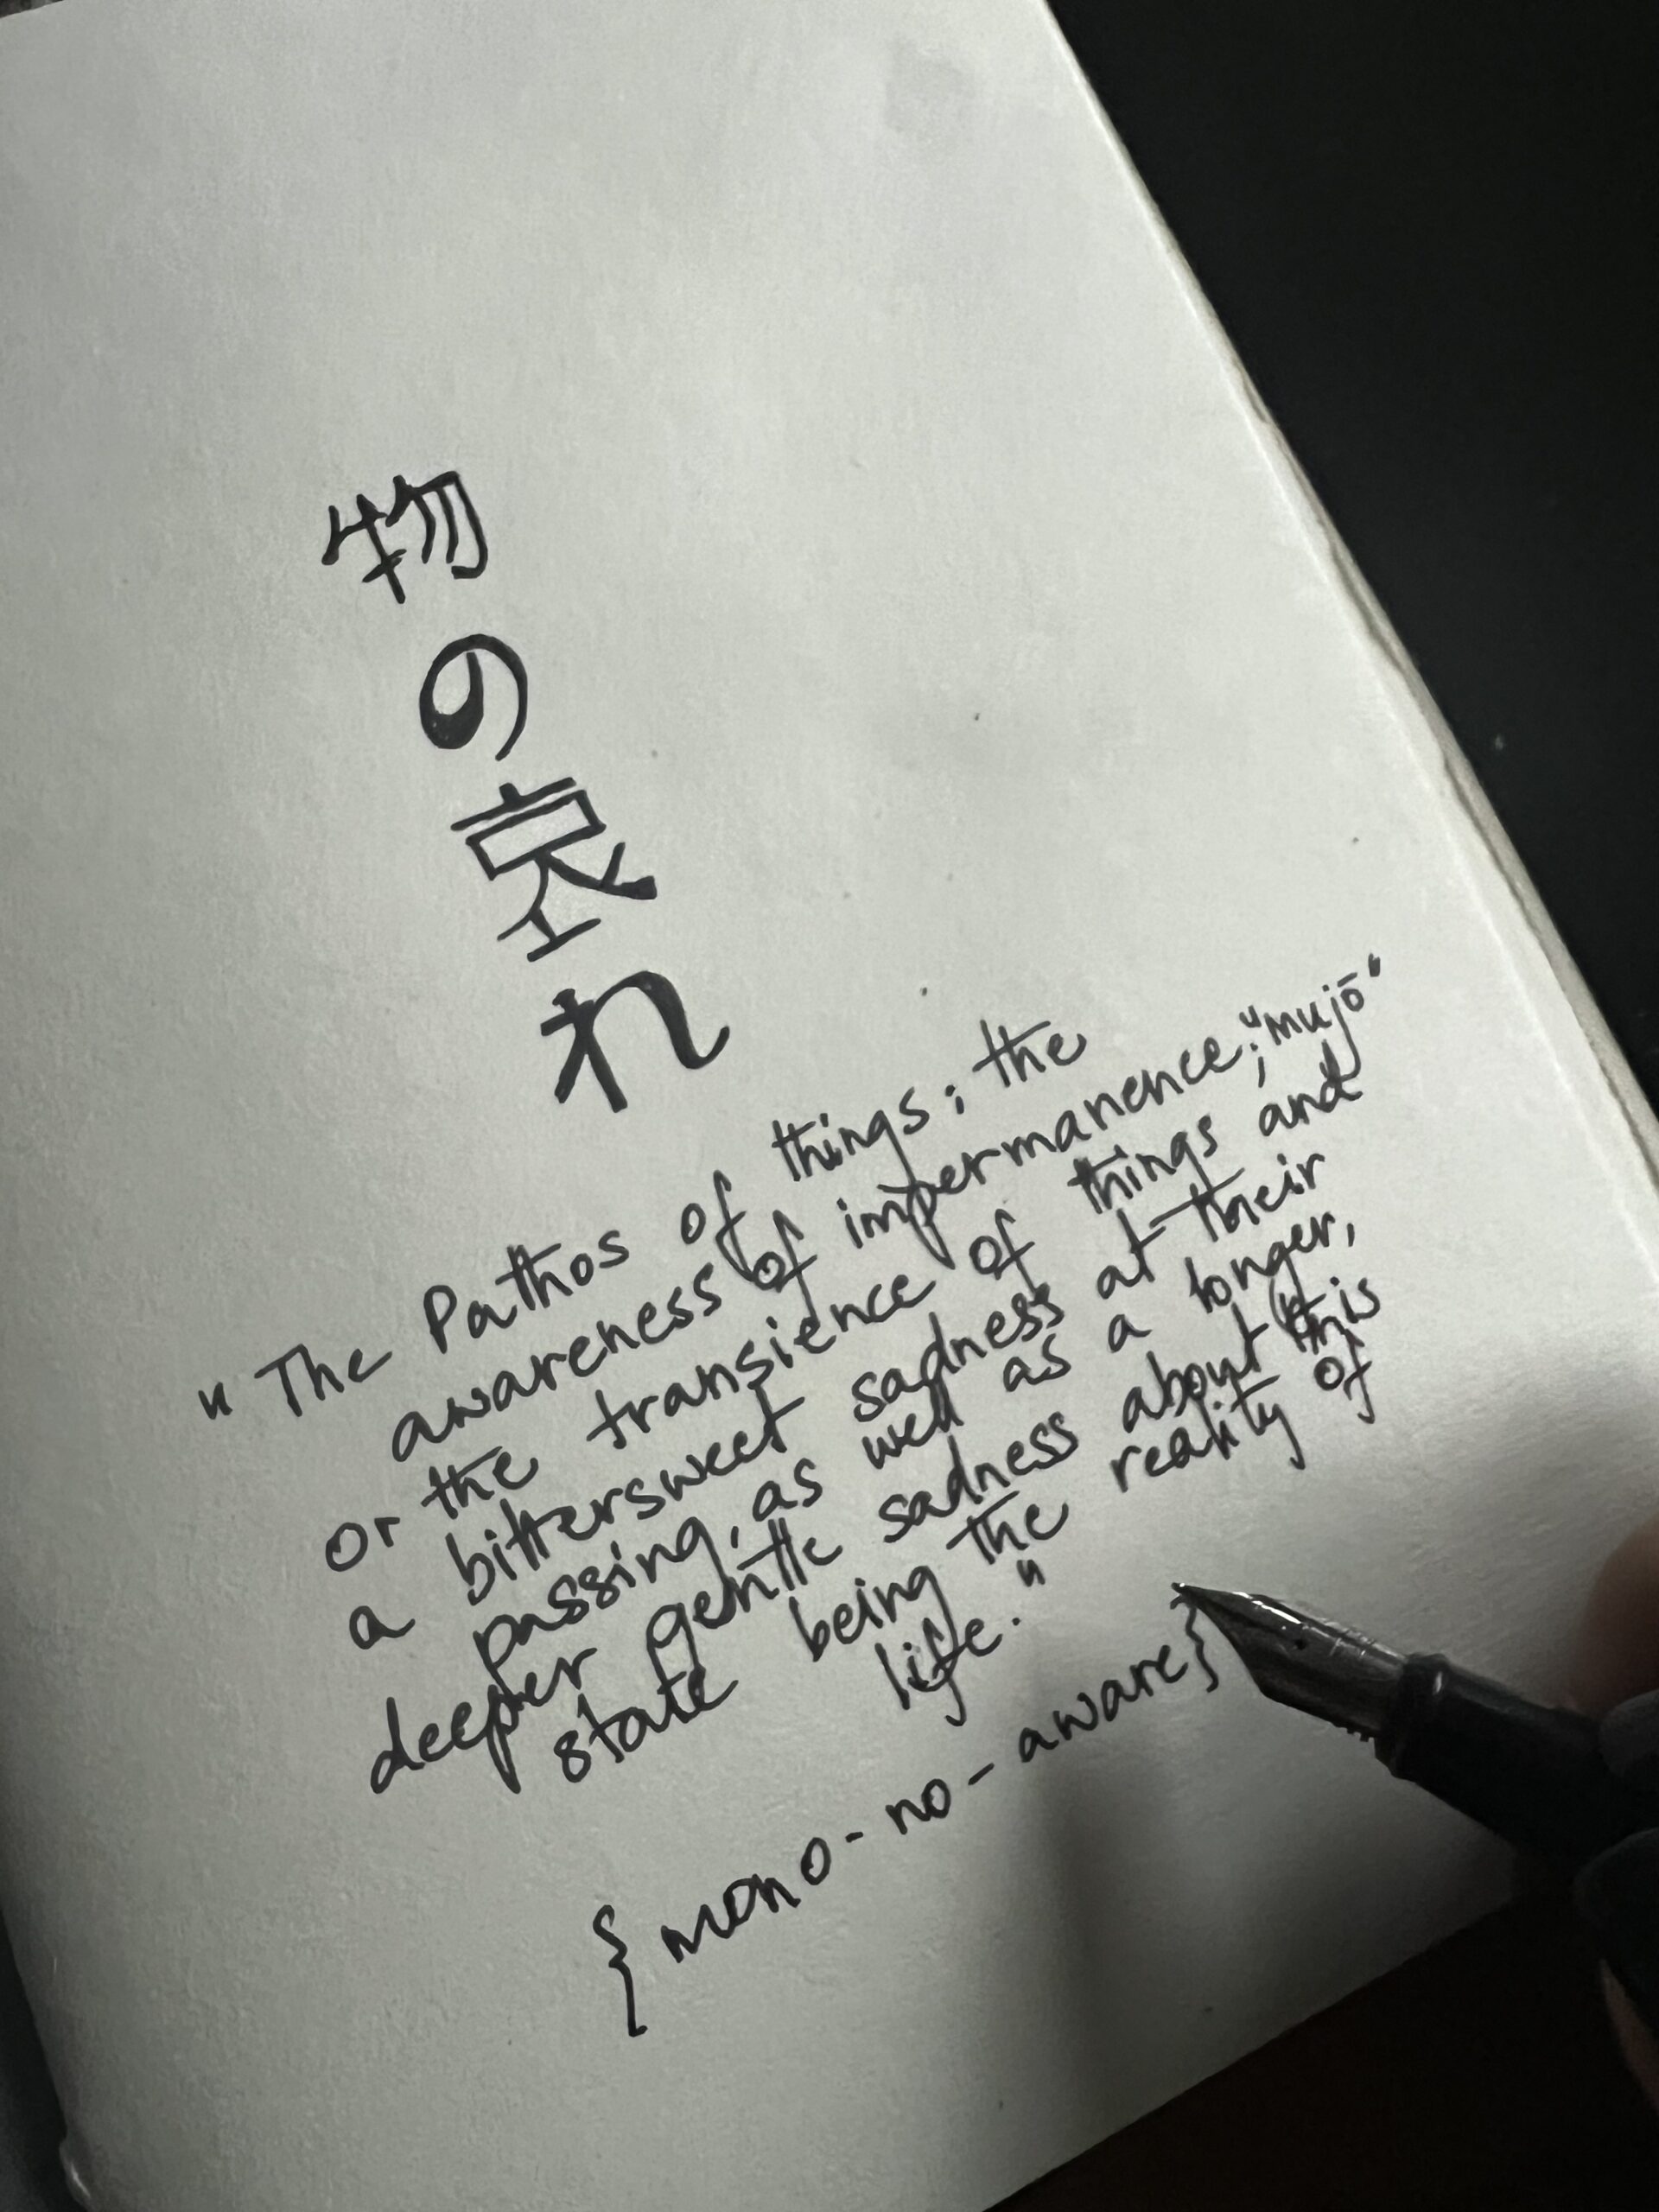 物の哀れ
"The Pathos of things; the
awareness of impermanence; "mujō"
or the transience of things and
a bittersweet sadness at their
passing, as well as a longer,
deeper gentle sadness about this
state being the reality of
life."
{mono-no-aware}